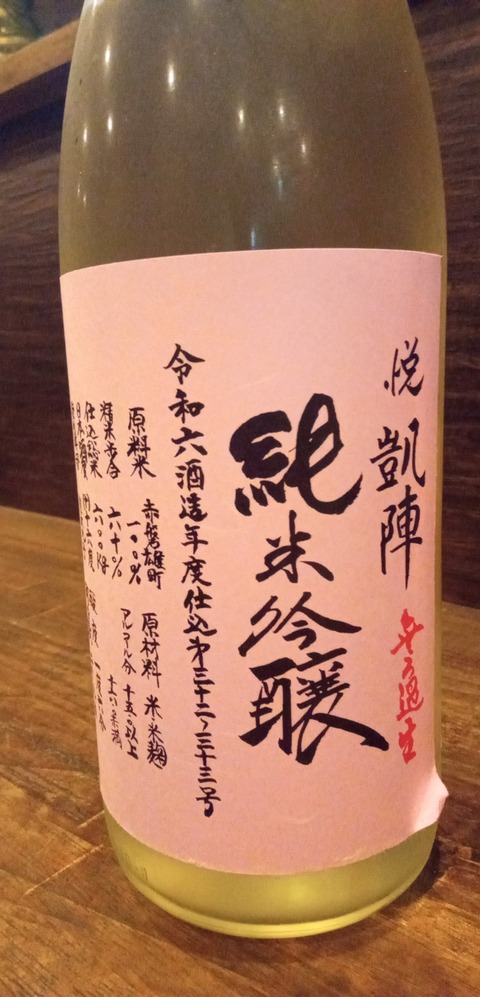 悦 凱陣
無ろ過生
純米吟醸
令和六酒造年度仕込第三十二～三十三号
原料米 赤磐雄町
一〇〇％
精米歩合 六十％
仕込総米 六〇〇kg
日本酒度
原材料 米・米麹
アルコール分 十五％以上
十六％未満